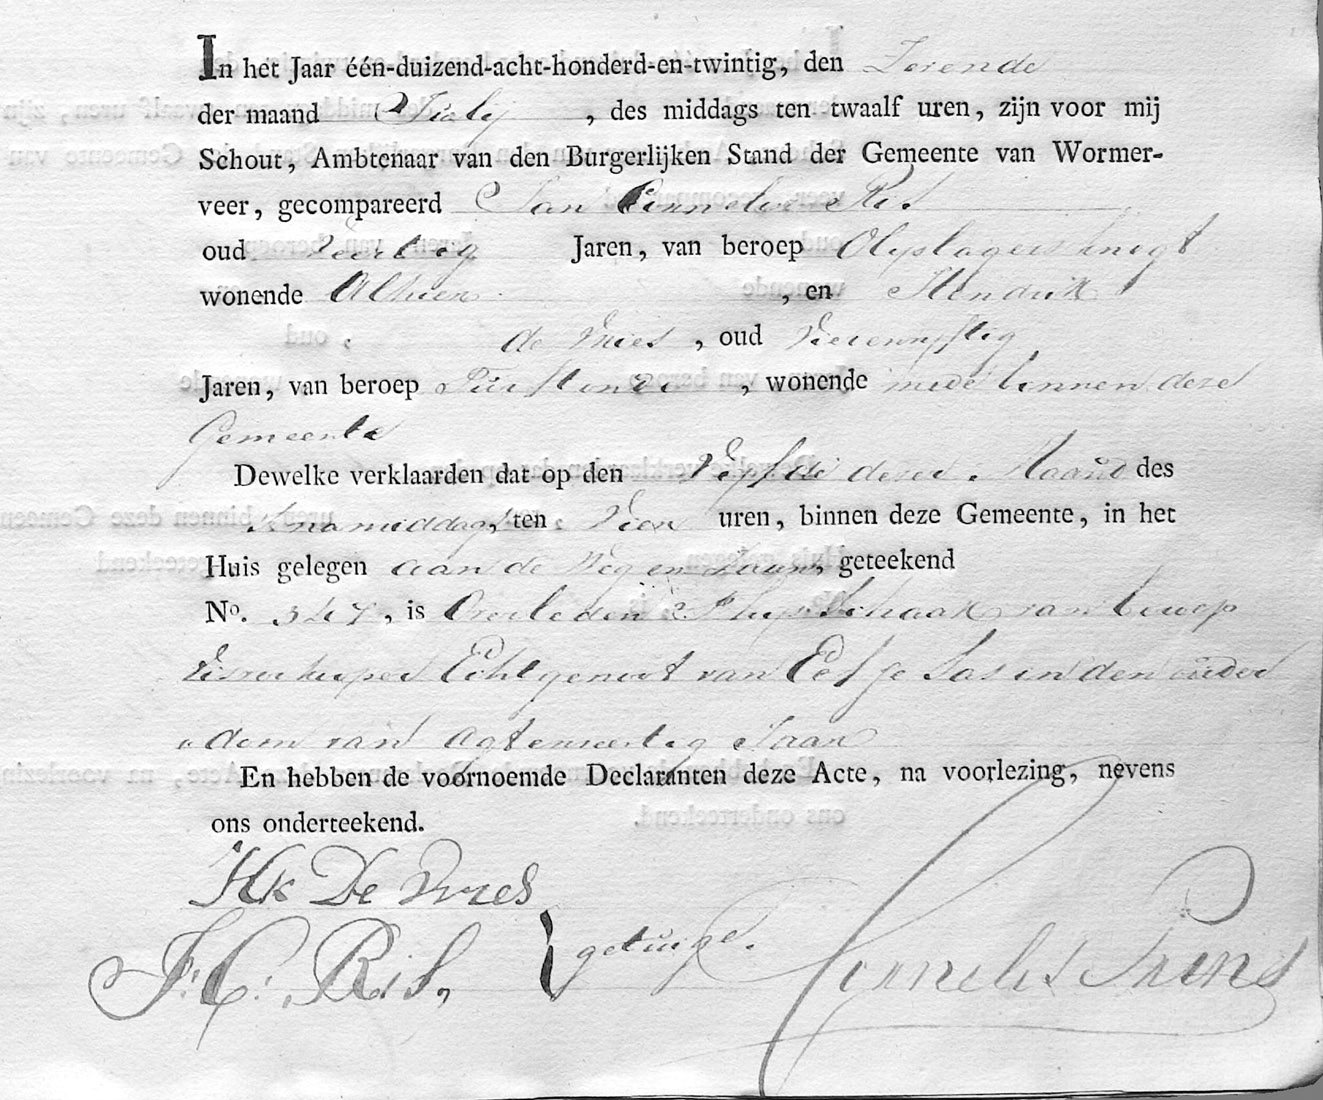 In het Jaar één-duizend-acht-honderd-en-twintig, den Zevende
der maand Julij, des middags ten twaalf uren, zijn voor mij
Schout, Ambtenaar van den Burgerlijken Stand der Gemeente van Wormer-
veer, gecompareerd Jan Cornelisse Ris
oud Veertig Jaren, van beroep Olyslagersknegt
wonende Alhier, en Hendrik
de Vries, oud Vierenvyftig
Jaren, van beroep, wonende mede binnen deze
Gemeente
Dewelke verklaarden dat op den Vyfde dezer Maand des
namiddags, ten Vier uren, binnen deze Gemeente, in het
Huis gelegen aan de Weg en Laan, geteekend
No. 347, is Overleden Schaak van beroep
Echtgenoot van Eefje Jas in den ouder
"dom van Agtenveertig Jaar
En hebben de voornoemde Declaranten deze Acte, na voorlezing, nevens
ons onderteekend.
Hk De Vries
J: C: Ris,
getuige.
Cornelis Prins